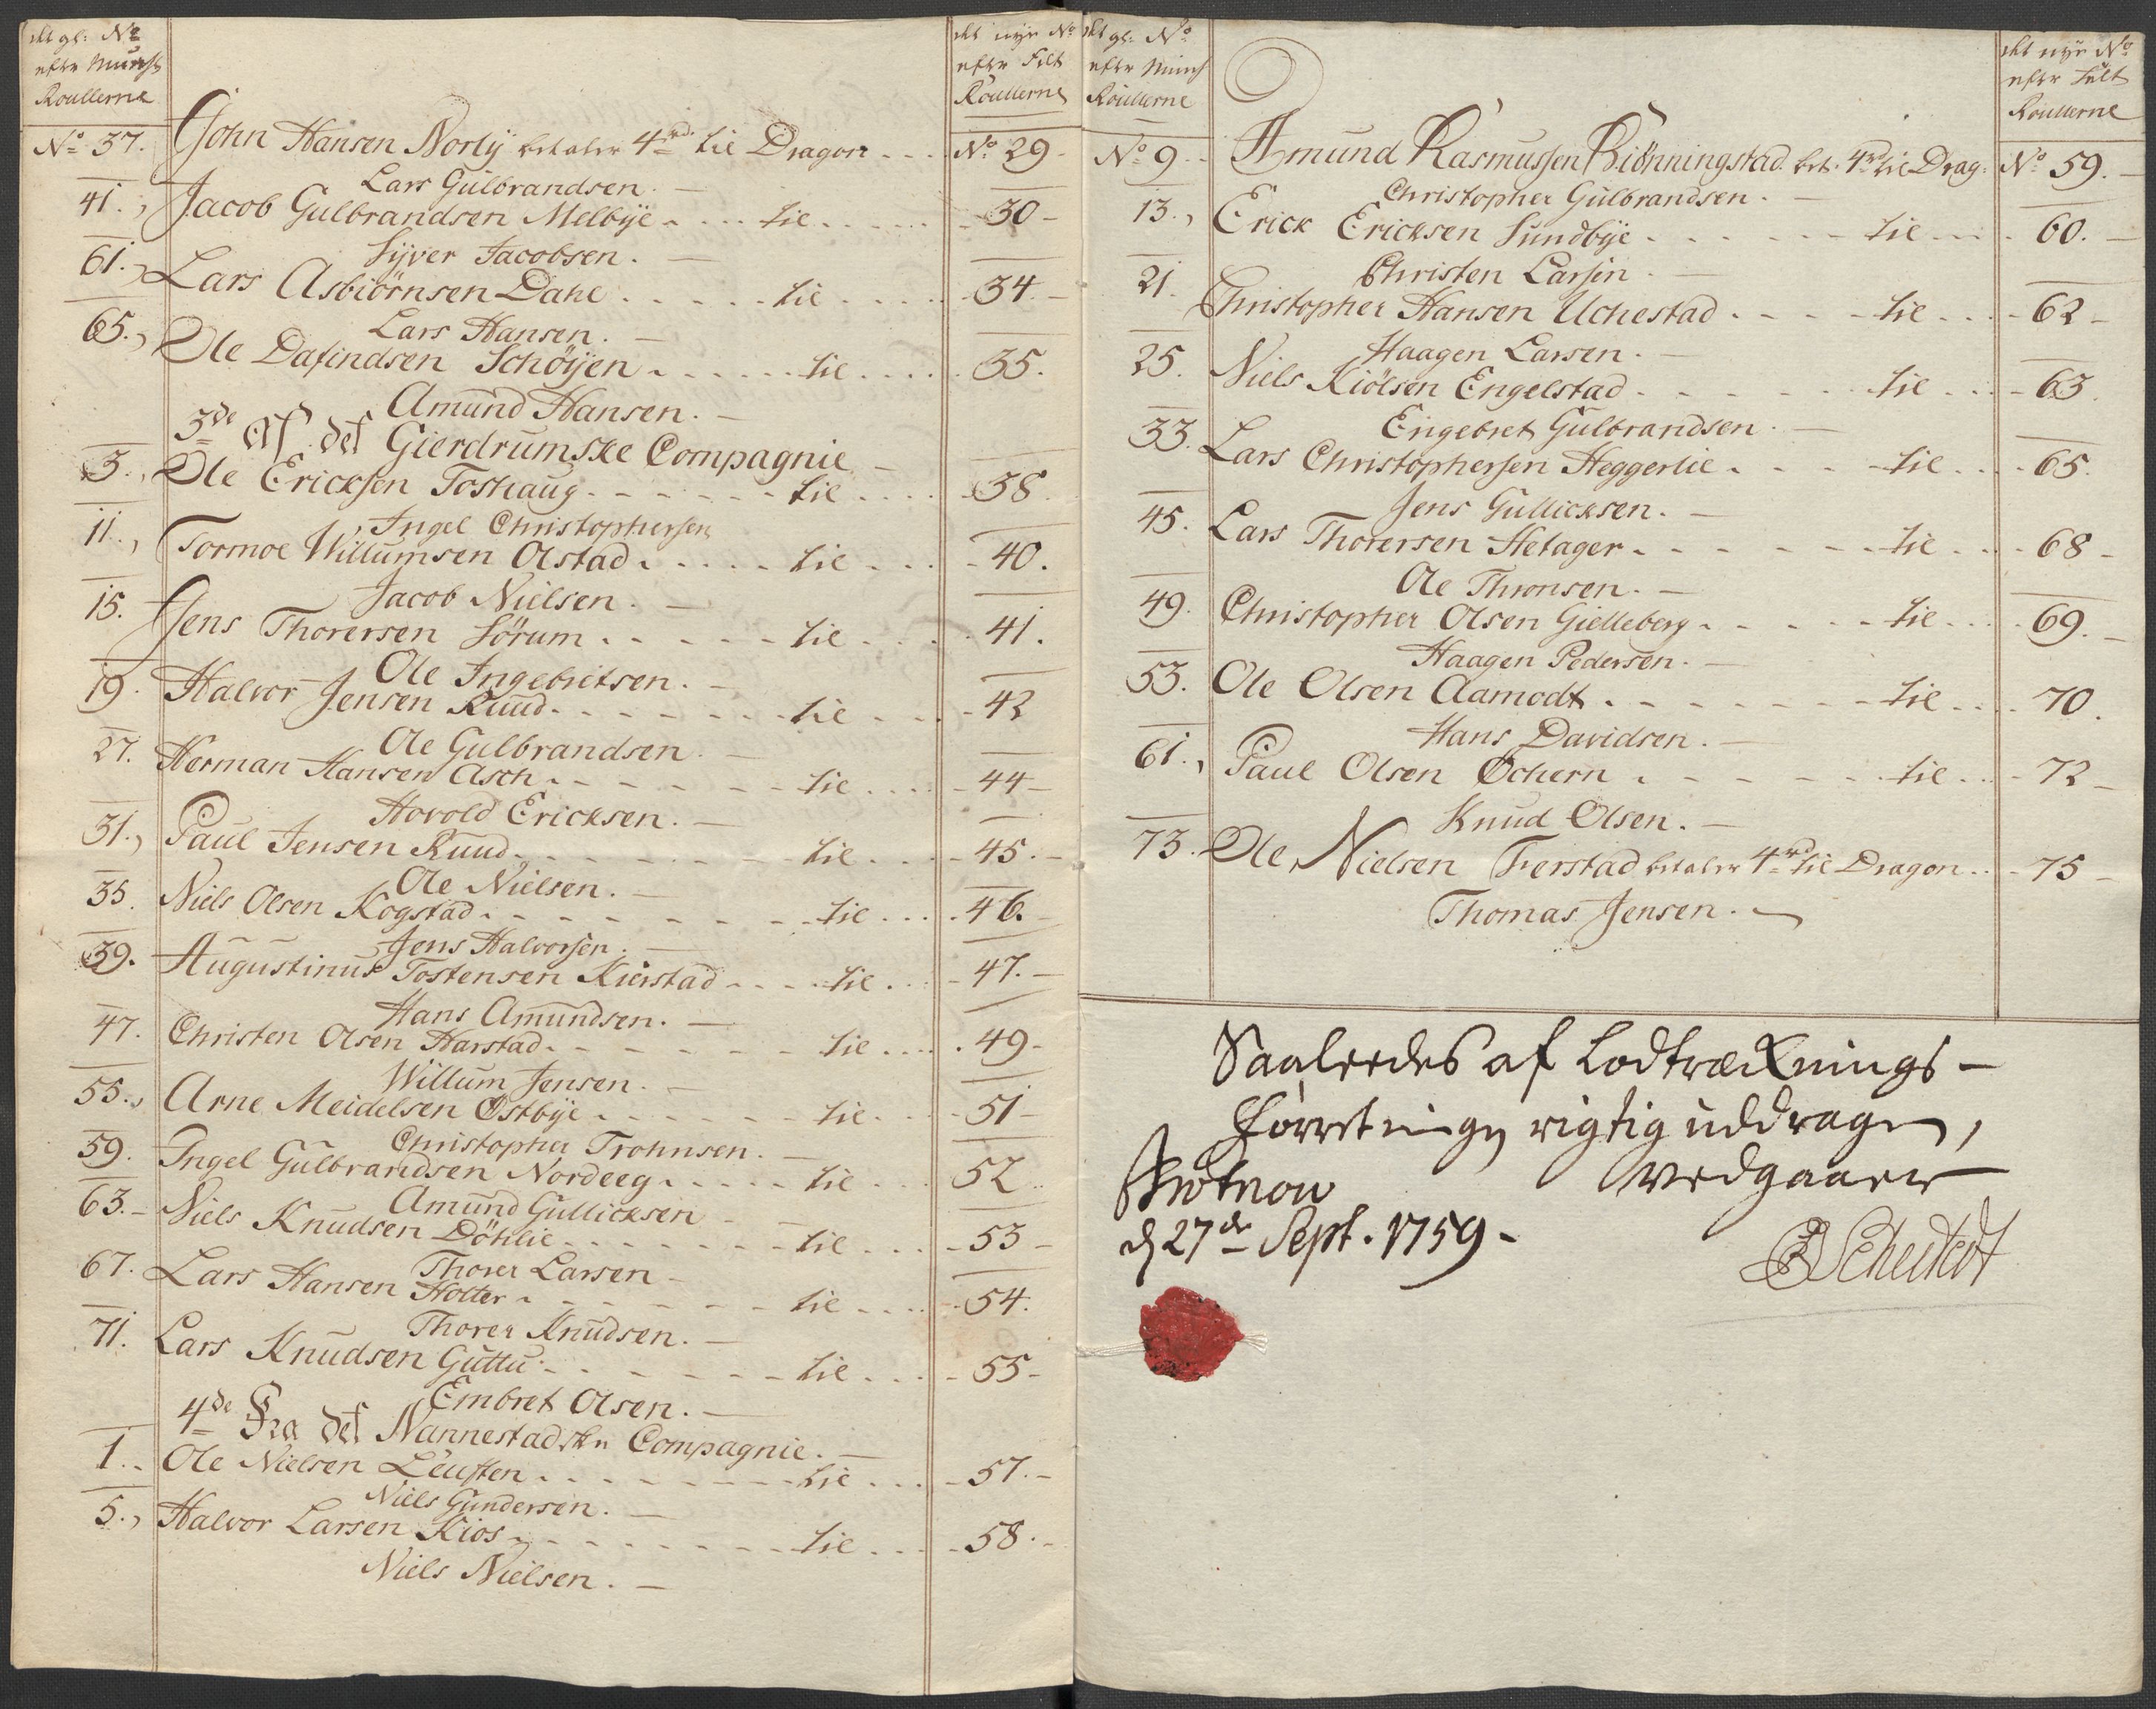 det gl: No
efter Munst
Roullerne
det nye No
efter Felt
Roullerne
No 37. John Hansen Norby betaler 4 rd. til Dragon . . . No 29 -
Lars Gulbrandsen. -
41., Jacob Gulbrandsen Melbye . . . . til . . . . . - 30 -
Syver Jacobsen. -
61., Lars Asbiørnsen Dahl . . . . . til . . . . . 34. -
Lars Hansen. -
65., Ole Dafindsen Schøyen . . . . . til . . . . 35.
Amund Hansen. -
3de Af det Gierdrumske Compagnie -
3., Ole Ericksen Toshaug . . . . . . til . . . . 38.
Ingel Christophersen
11., Tormoe Willumsen Olstad . . . . . til . . . . 40.
Jacob Nielsen. -
15. Jens Thorersen Sørum . . . . . til . . . . 41.
Ole Ingebretsen. -
19. Halvor Jensen Ruud . . . . . . til . . . - 42
Ole Gulbrandsen. -
27. Herman Hansen Asch . . . . . . til . . . . 44 -
Hovold Ericksen. -
31., Paul Jensen Ruud . . . . . . . til . . . - 45. -
Ole Nielsen. -
35. Niels Olsen Kogstad . . . . . . . til . . . . 46. -
Jens Halvorsen. -
39. Augustinus Tostensen Kierstad . . . . til . . . - 47. -
Hans Amundsen. -
47. Christen Olsen Harstad . . . . . . til . . . . 49 -
Willum Jensen. -
55., Arne Meidelsen Østbye . . . . . . til . . . - 51 -
Christopher Trohnsen. -
59. Ingel Gulbrandsen Nordeeg . . . . . til . . . 52. -
Amund Gullicksen -
63. - Niels Knudsen Döhlie . . . . . . . til . . . . 53 -
Thorer Larsen -
67. Lars Hansen Holter . . . . . . til . . . . 54.
Thorer Knudsen. -
71. Lars Knudsen Guttu . . . . . . til . . . . 55 -
Embret Olsen. -
4de Fra det Nannestadske Compagnie. -
1. . Ole Nielsen Leusten . . . . . . . til . . . - 57. -
Niels Gundersen. -
5., Halvor Larsen Kios . . . . . . . til . . . . 58. -
Niels Nielsen. -
det gl: No
efter Munst
Roullerne
det nye No
efter Felt
Roullerne
No 9. . Amund Rasmussen Biönningstad. bet. 4 rd til Drag: No 59. -
Christopher Gulbrandsen. -
13., Erick Ericksen Sundbye . . . . . . til . . . . 60. -
Christen Larsen. -
21. Christopher Hansen Uchestad . . . . til . . . - 62 -
Haagen Larsen. -
25. Niels Kiölsen Engelstad . . . . . til . . . - 63.
Engebret Gulbrandsen. -
33. Lars Christophersen Heggerlie . . . . til . . . . 65.
Jens Gullicksen. -
45. Lars Thorersen Hetager . . . . . . til . . . . 68 -
Ole Thronsen. -
49. Christopher Olsen Gielleberg . . . . . til . . . . 69. -
Haagen Pedersen. -
53. Ole Olsen Aamodt . . . . . . . til . . . . 70.
Hans Davidsen. -
61., Paul Olsen Ochern . . . . . . til . . . - 72 -
Knud Olsen. -
73. Ole Nielsen Ferstad betaler 4 rd til Dragon . . - 75 -
Thomas Jensen. -
Saaledes af Lodtræknings -
Forretningen rigtig uddragen,
vedgaaer
d 27de Sept. 1759 -